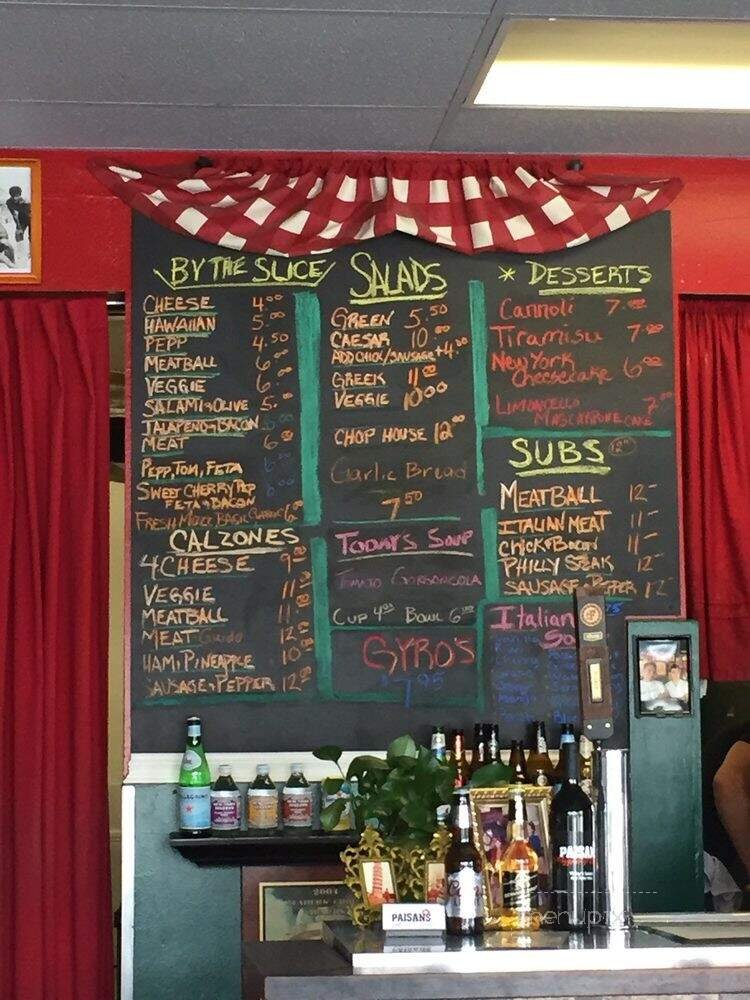 BY THE SLICE
CHEESE 4.00
HAWAIIAN 5.00
PEPP 4.50
MEATBALL 6.00
VEGGIE 6.00
SALAMI & OLIVE 5.00
JALAPENO & BACON
MEAT 6.00
PEPP, TOM, FETA
SWEET CHERRY PEP
FETA & BACON
FRESH MOZZ BASIL 6.00
CALZONES
4 CHEESE 9.00
VEGGIE 11.00
MEATBALL 11.00
MEAT Guido 12.00
HAM, PINEAPPLE 10.00
SAUSAGE & PEPPER 12.00
SALADS
GREEN 5.50
CAESAR 10.00
ADD CHICK/SAUSAGE +4.00
GREEK 11.00
VEGGIE 10.00
CHOP HOUSE 12.00
Garlic Bread
7.50
TODAY'S SOUP
TOMATO GORGONGOLA
CUP 4.95 BOWL 6.00
GYRO'S
$7.95
* DESSERTS
Cannoli 7.00
Tiramisu 7.00
New York
Cheesecake 6.00
LIMONCELLO
MASCARPONE CAKE 7.00
SUBS 12"
MEATBALL 12-
ITALIAN MEAT 11-
CHICK & BACON 11-
PHILLY STEAK 12
SAUSAGE & PEPPER 12
Italian
PAISANS
2004